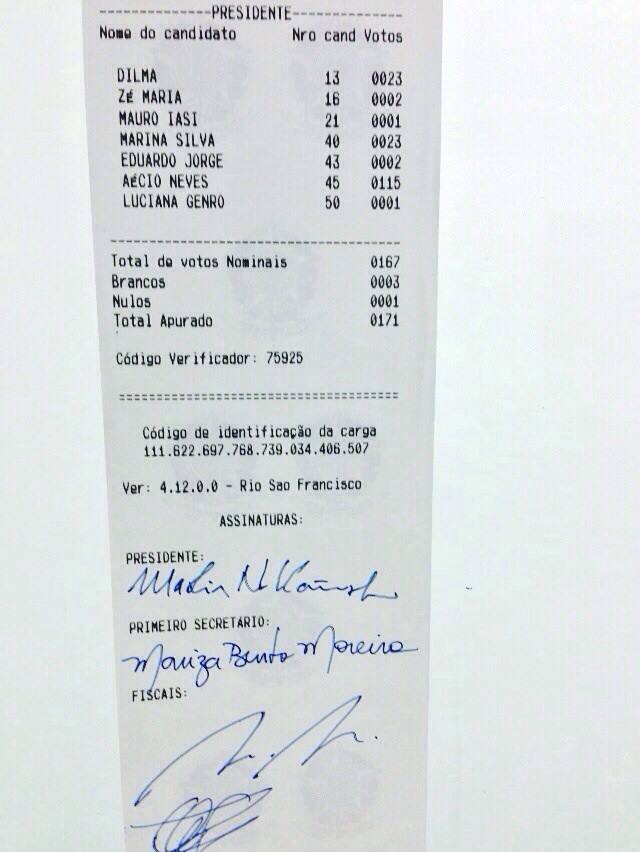 --------------PRESIDENTE--------------
Nome do candidato Nro cand Votos
DILMA 13 0023
ZÉ MARIA 16 0002
MAURO IASI 21 0001
MARINA SILVA 40 0023
EDUARDO JORGE 43 0002
AÉCIO NEVES 45 0115
LUCIANA GENRO 50 0001
--------------------------------------
Total de votos Nominais 0167
Brancos 0003
Nulos 0001
Total Apurado 0171
Código Verificador: 75925
======================================
Código de identificação da carga
111.622.697.768.739.034.406.507
Ver: 4.12.0.0 - Rio Sao Francisco
ASSINATURAS:
PRESIDENTE:
PRIMEIRO SECRETÁRIO:
Mariza Bento Moreira
FISCAIS: